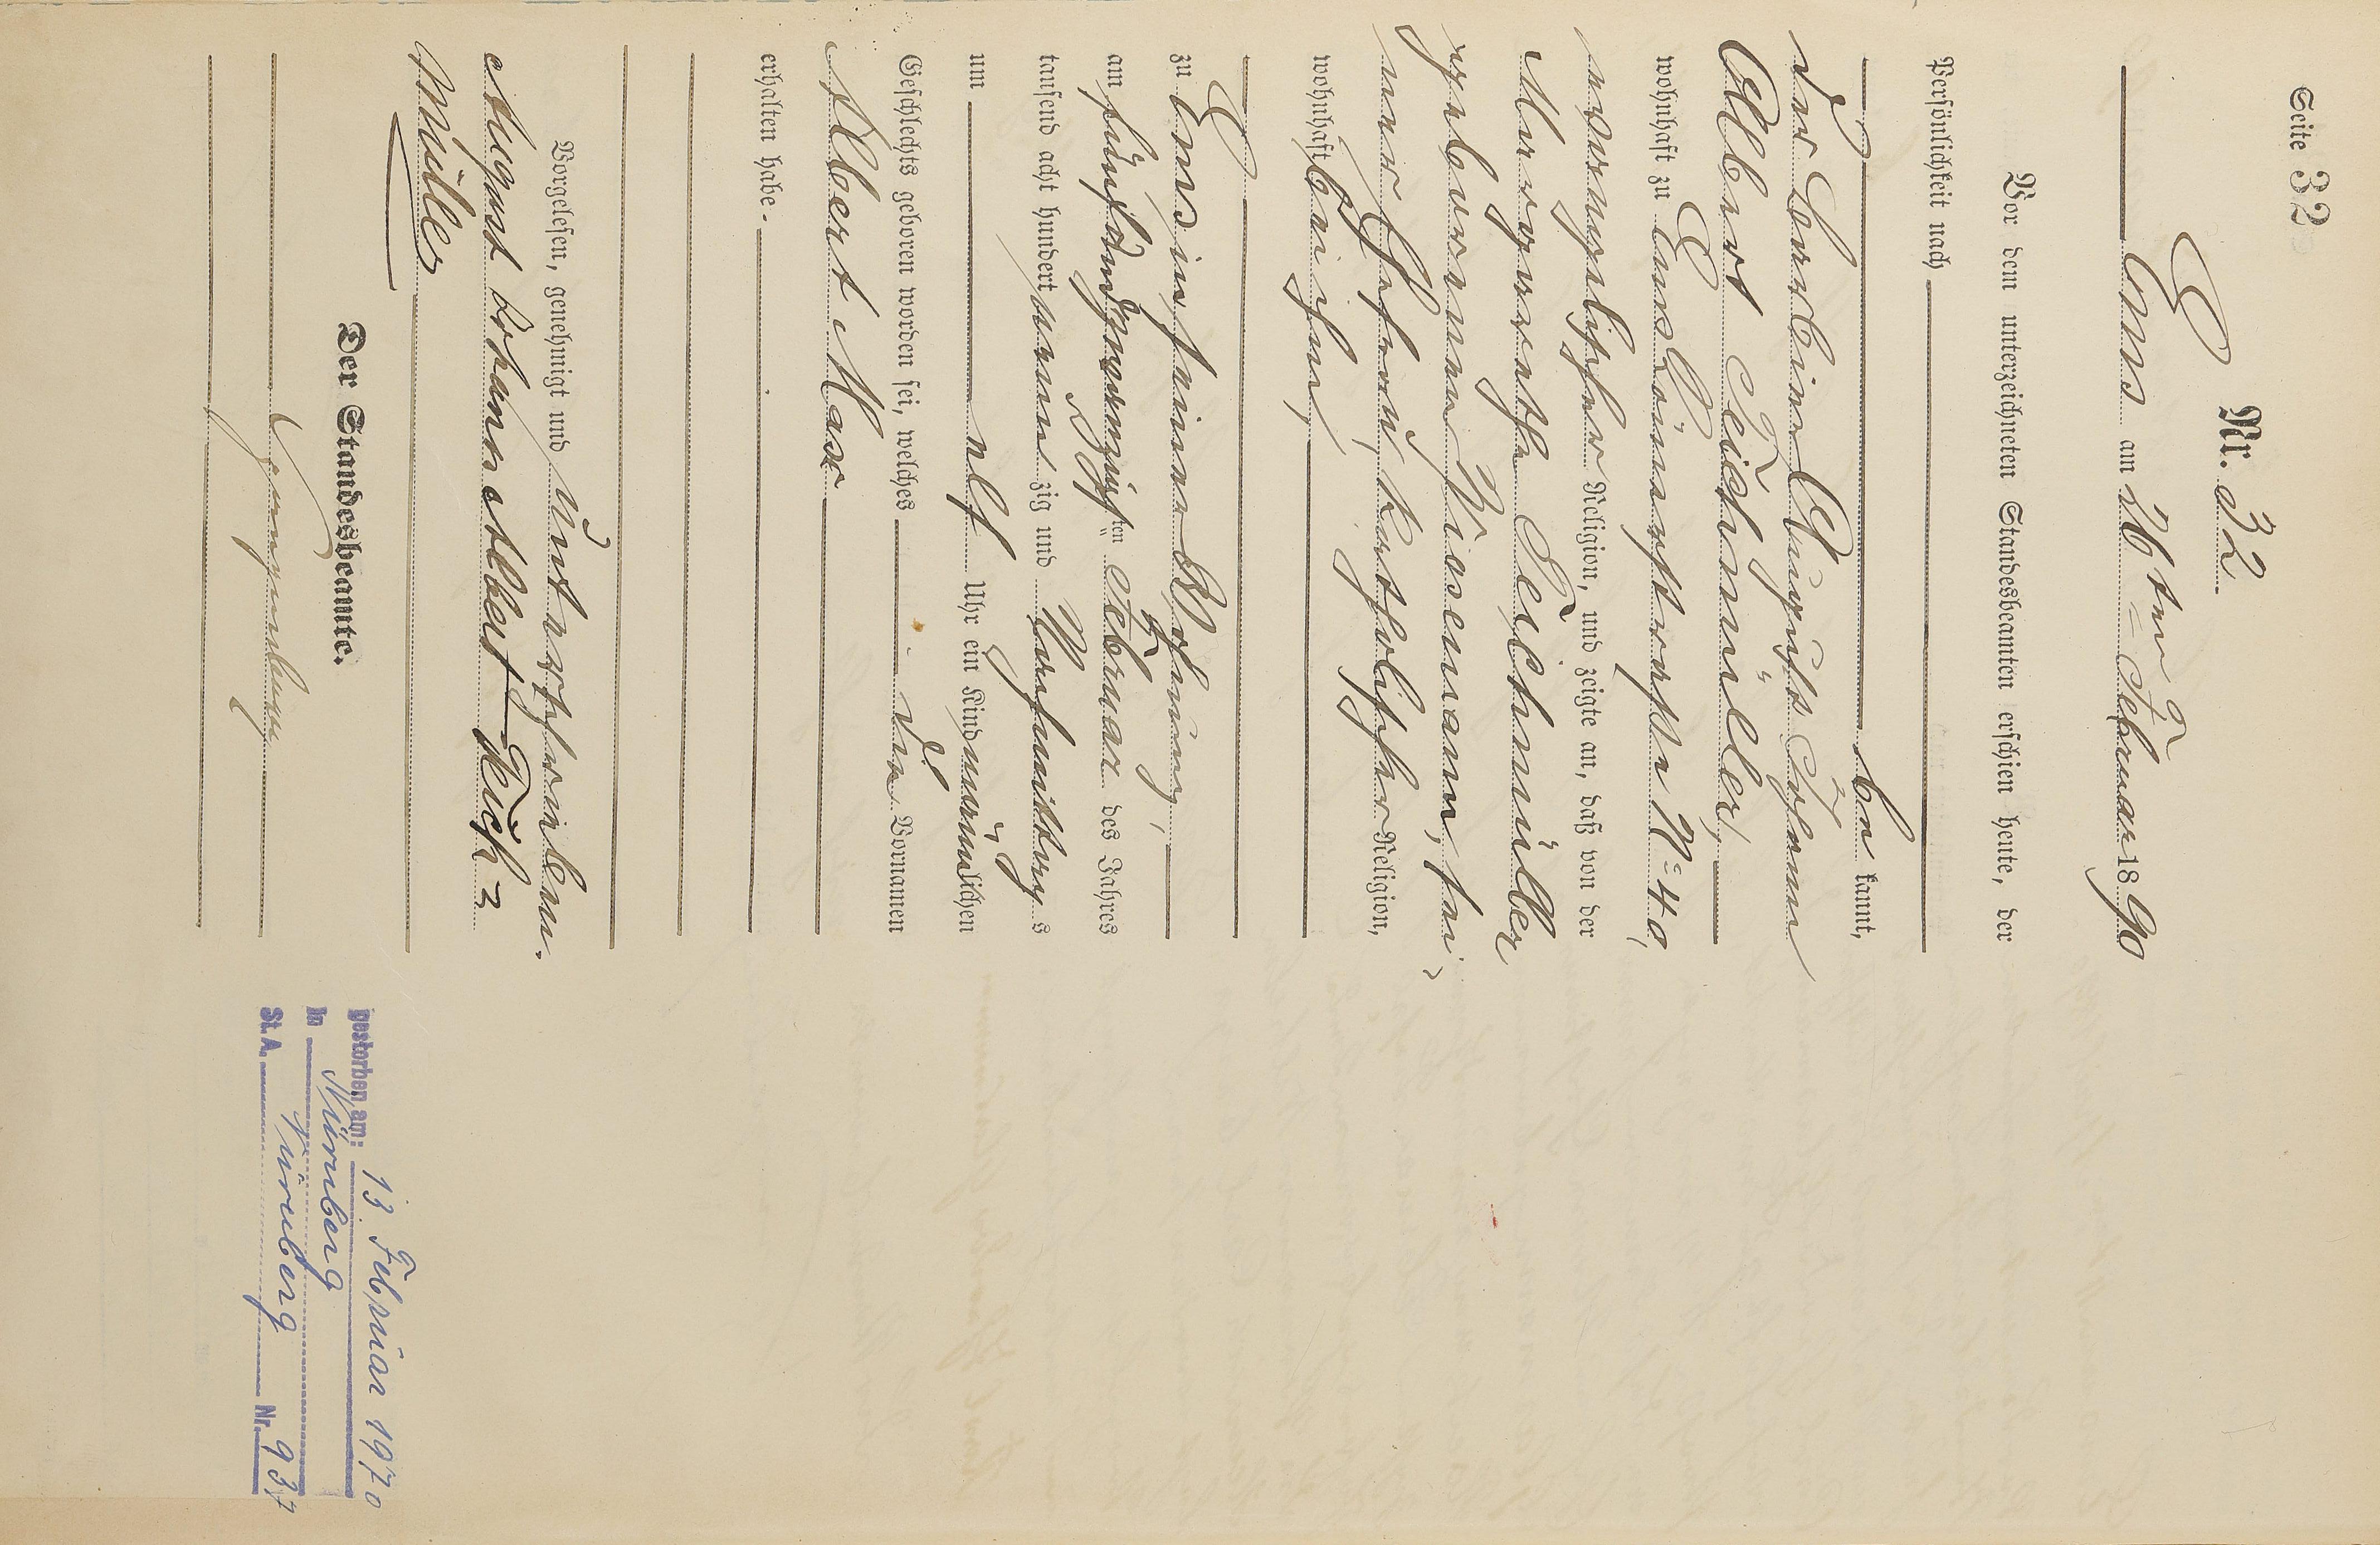 Seite 32
Nr. 32.
Ems am 26ten Februar 1890
Vor dem unterzeichneten Standesbeamten erschien heute, der
Persönlichkeit nach
be kannt,
der Barbier August Johann
Albert Teichmüller,
wohnhaft zu Ems Römerstraße No 40,
evangelischer Religion, und zeigte an, daß von der
Margarethe Teichmüller
geborenen Wiesemann, sei-
ner Ehefrau, katholischer Religion,
wohnhaft bei ihm,
zu Ems in seiner Wohnung,
am fünfundzwanzigsten Februar des Jahres
tausend acht hundert neun zig und Vormittags
um elf Uhr ein Kind männlichen
Geschlechts geboren worden sei, welches die Vornamen
Albert Max
erhalten habe.
Vorgelesen, genehmigt und unterschrieben.
August Johann Albert Teich-
müller
Der Standesbeamte.
gestorben am: 13. Februar 1970
in Nürnberg
St.A. Nürnberg Nr. 937